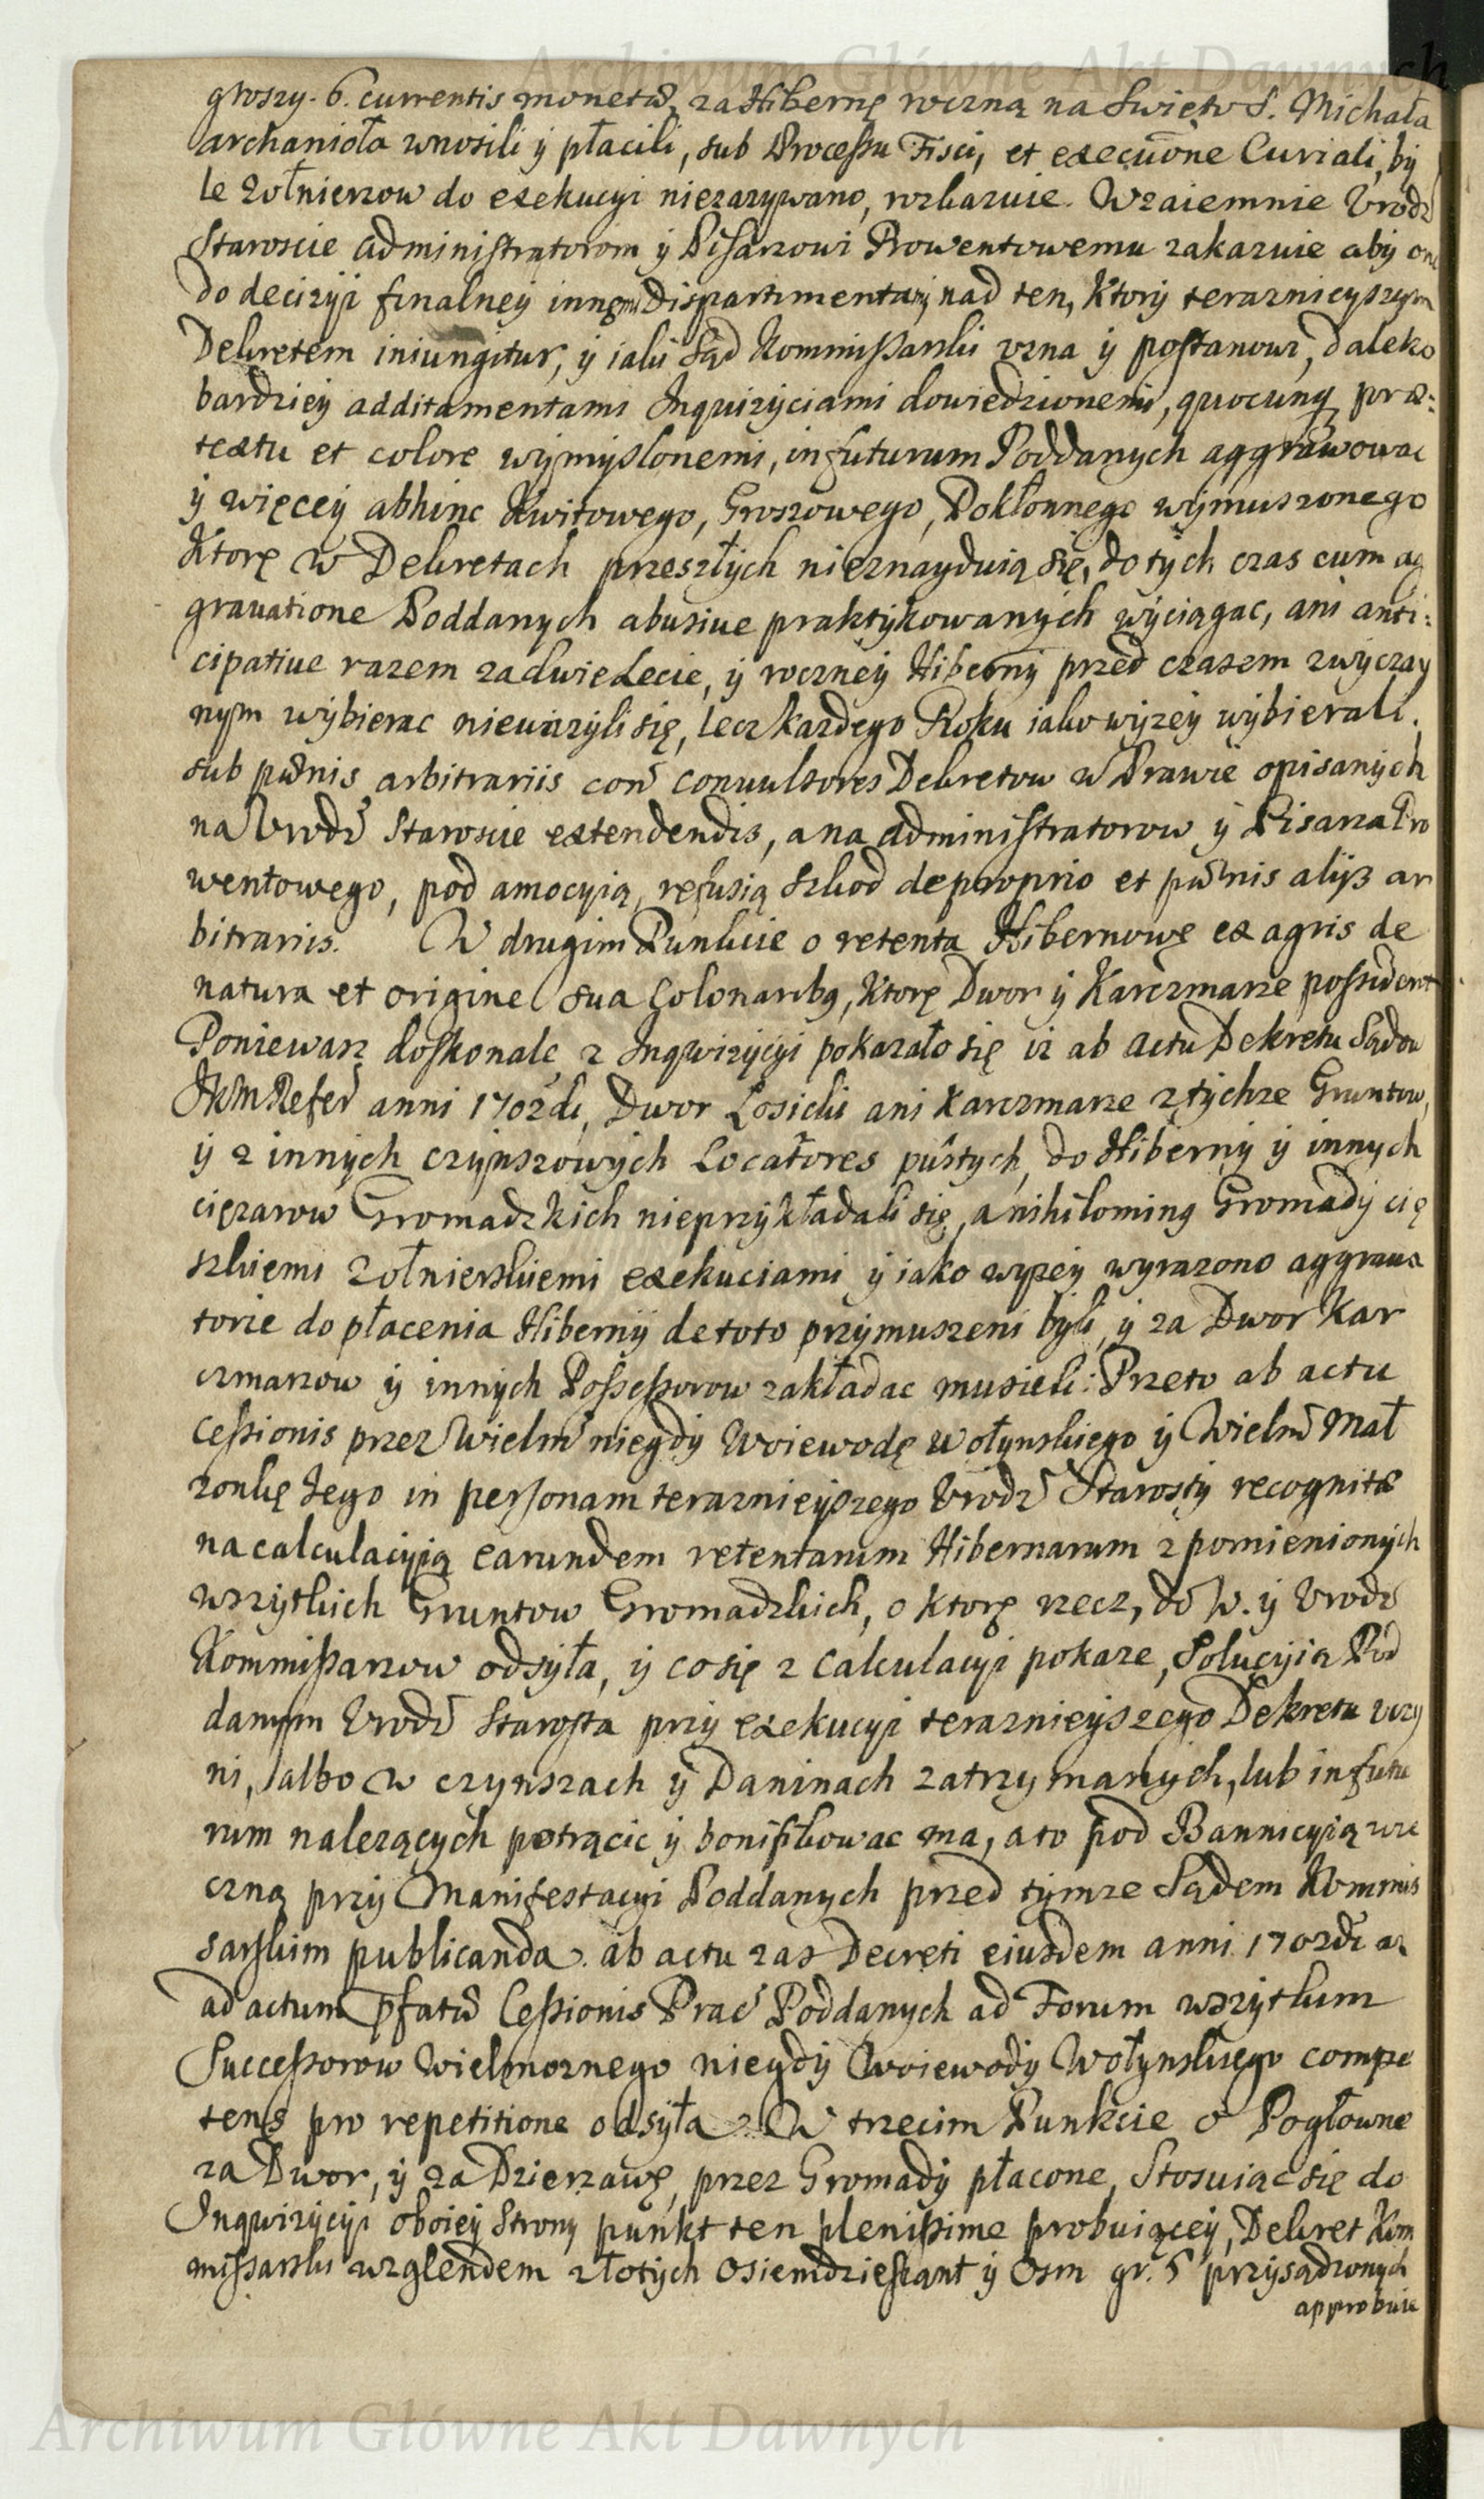 Archiwum Główne Akt Dawnych
groszy. 6. currentis monetæ, za Hibernę roczną na Swięto S. Michała
Archanioła wnosili ÿ płacili, sub Processu Fisci, et execuõne Curiali, bÿ
le Zołnierzow do exekucÿi niezazywano, rozkazuie. Wzaiemnie Vrodz
Staroscie Administratorom ÿ Pisarzowi Prowentowemu zakazuie abÿ oni
do decizÿi finalneÿ innemi Dispartimentami, nad ten, Ktorÿ teraznieyszym
Dekretem iniungitur, ÿ iaki Sąd Kommissarski vzna ÿ postanowi, daleko
bardzieÿ additamentami Inquizÿciami dowiedzionemi, quocunq præ=
textu et colore wÿmÿslonemi, in futurum Poddanych aggrawowac
ÿ więceÿ abhinc Kwitowego, Groszowego, Pokłonnego wÿmuszonego
Ktore w Dekretach przeszłÿch nieznayduią się, do tÿch czas cum ag
grauatione Poddanych abusiue praktÿkowanÿch wÿciągac, ani anti=
cipatiue razem za dwie Lecie, ÿ roczneÿ Hibernÿ przed czasem zwÿczaÿ
nÿm wÿbierac niewazÿli się, lecz kazdego Roku iako wÿzeÿ wÿbierali.
sub pœnis arbitrariis con̄ conuulsores Dekretow w Prawie opisanÿch
na Vrodz Staroscie extendendis, a na Administratorow ÿ Pisarza Pro
wentowego, pod amocÿią, refusią szkod de proprio et pœnis alÿs ar
bitrariis. W drugim Punkcie o retenta Hibernowe ex agris de
natura et origine sua Colonaribg, Ktore Dwor ÿ Karczmarze possident
Poniewasz doskonale z Inqwizÿcÿi pokazało się iz ab actu Dekretu Sądow
JKM Refer anni 1702di, Dwor Łosicki ani Karczmarze z tÿchze Gruntow,
ÿ z innÿch czÿnszowÿch Locatores pustÿch, do Hibernÿ ÿ innÿch
cięzarow Gromadzkich nieprzÿkładali się, a nihilominq Gromadÿ cię
szkiemi Zołnierskiemi exekuciami ÿ iako wyzeÿ wyrazono aggraua
torie do płacenia Hibernÿ de toto przÿmuszeni bÿli, ÿ za Dwor Kar
czmarzow ÿ innÿch Possessorow zakładac musieli: Przeto ab actu
cessionis przez Wielm niegdÿ Woiewodę Wołynskiego ÿ Wielm Mał
zonkę Jego in personam teraznieÿszego Vrodz Starostÿ recognitæ
na calculacÿią earundem retentarum Hibernarum z pomienionÿch
wszÿtkich Gruntow Gromadzkich, o Ktore rzecz, do W. ÿ Vrodz
Kommissarzow odsyła, ÿ co się z calculacÿi pokaze, Solucÿią Pod
danÿm Vrodz Starosta przÿ exekucÿi teraznieÿszego Dekretu vczÿ
ni, albo w czynszach ÿ Daninach zatrzymanÿch, lub in futu
rum nalezących potrącic ÿ bonifikowac ma, a to pod Bannicÿią wie
czną przÿ Manifestacyi Poddanych przed tÿmze Sądem Kommis
sarskim publicanda. ab actu zas Decreti eiusdem anni 1702di az
ad actum p̄fatæ Cessionis Prac Poddanych ad Forum wszÿtkim
Successorow Wielmoznego niegdÿ Woiewodÿ Wołynskiego compe
tens pro repetitione odsyła. W trzecim Punkcie o Pogłowne
za Dwor, ÿ za Dzierzawę, przez Gromadÿ płacone, Stosuiąc się do
Inqwizÿcÿi oboieÿ Stronÿ punkt ten plenissime probuiąceÿ, Dekret Kom
missarski wzglendem złotych Osiemdziesiąt ÿ Osm gr. 5 przÿsądzonych
approbuie
Archiwum Główne Akt Dawnych